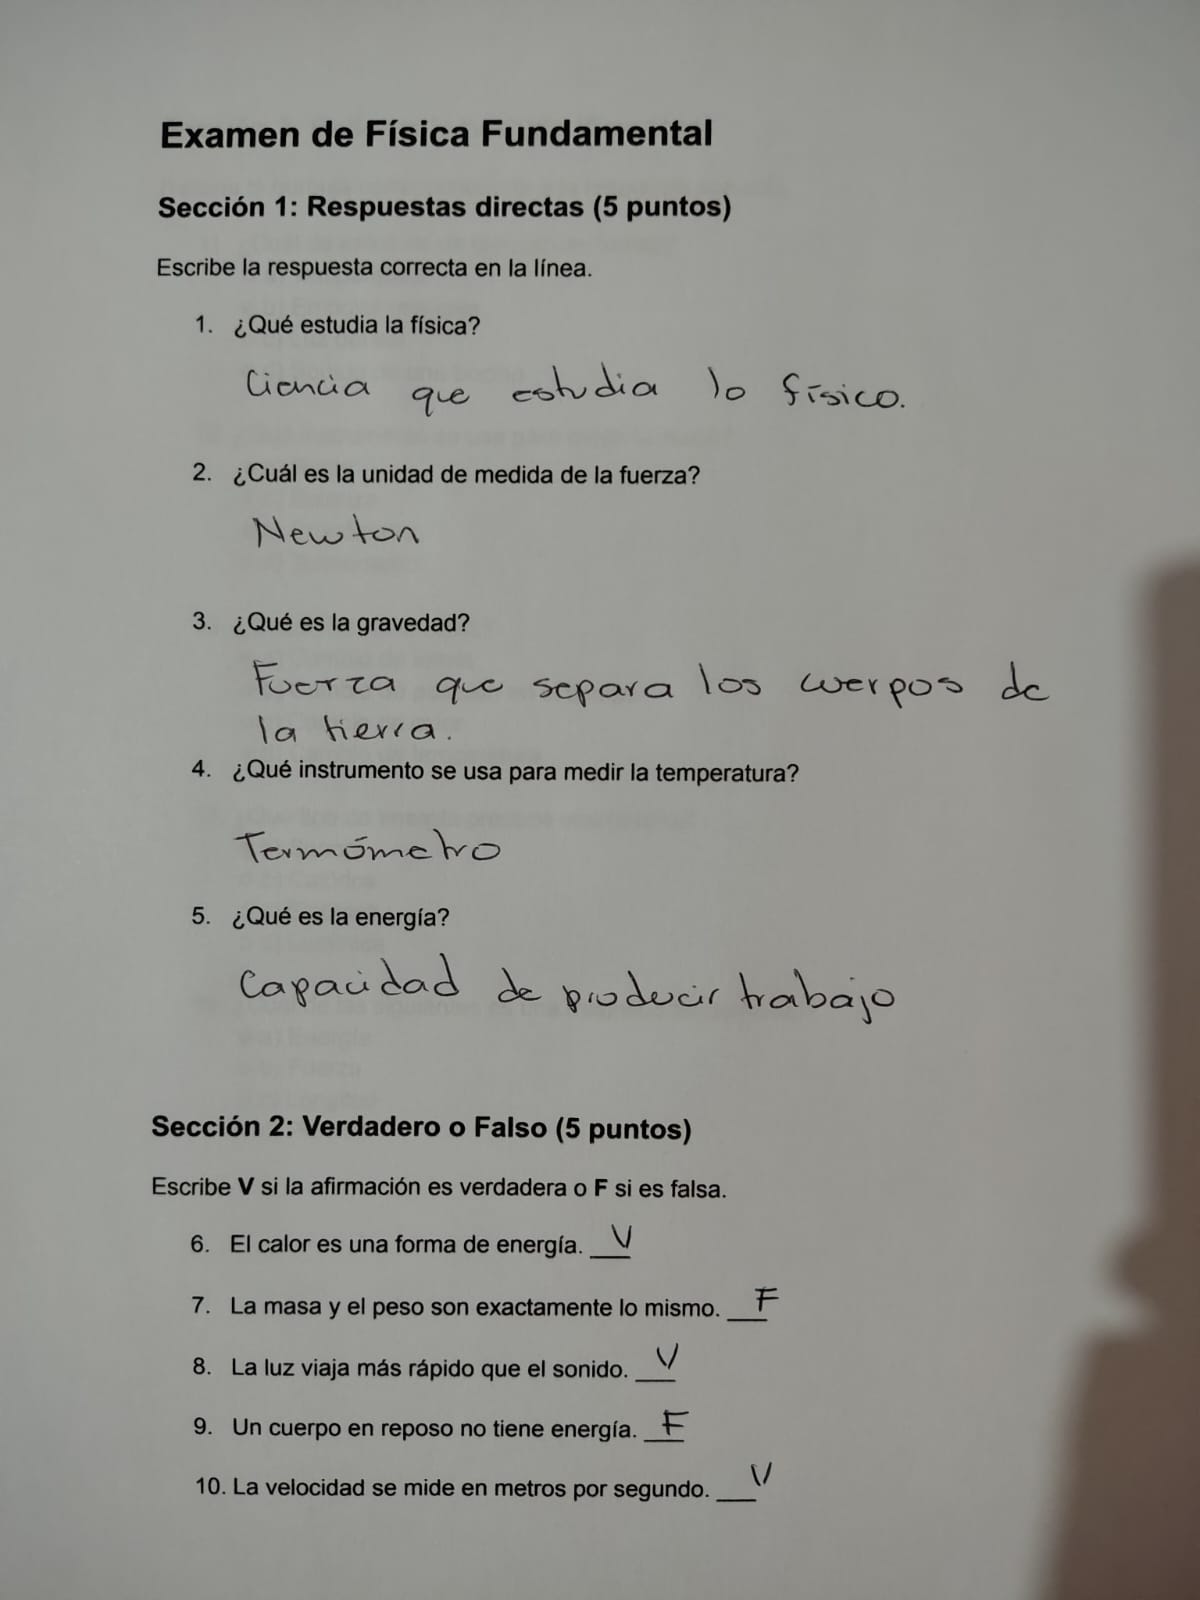 Examen de Física Fundamental
Sección 1: Respuestas directas (5 puntos)
Escribe la respuesta correcta en la línea.
1. ¿Qué estudia la física?
Ciencia que estudia lo físico.
2. ¿Cuál es la unidad de medida de la fuerza?
Newton
3. ¿Qué es la gravedad?
Fuerza que separa los cuerpos de
la tierra.
4. ¿Qué instrumento se usa para medir la temperatura?
Termómetro
5. ¿Qué es la energía?
Capacidad de producir trabajo
Sección 2: Verdadero o Falso (5 puntos)
Escribe V si la afirmación es verdadera o F si es falsa.
6. El calor es una forma de energía. V
7. La masa y el peso son exactamente lo mismo. F
8. La luz viaja más rápido que el sonido. V
9. Un cuerpo en reposo no tiene energía. F
10. La velocidad se mide en metros por segundo. V